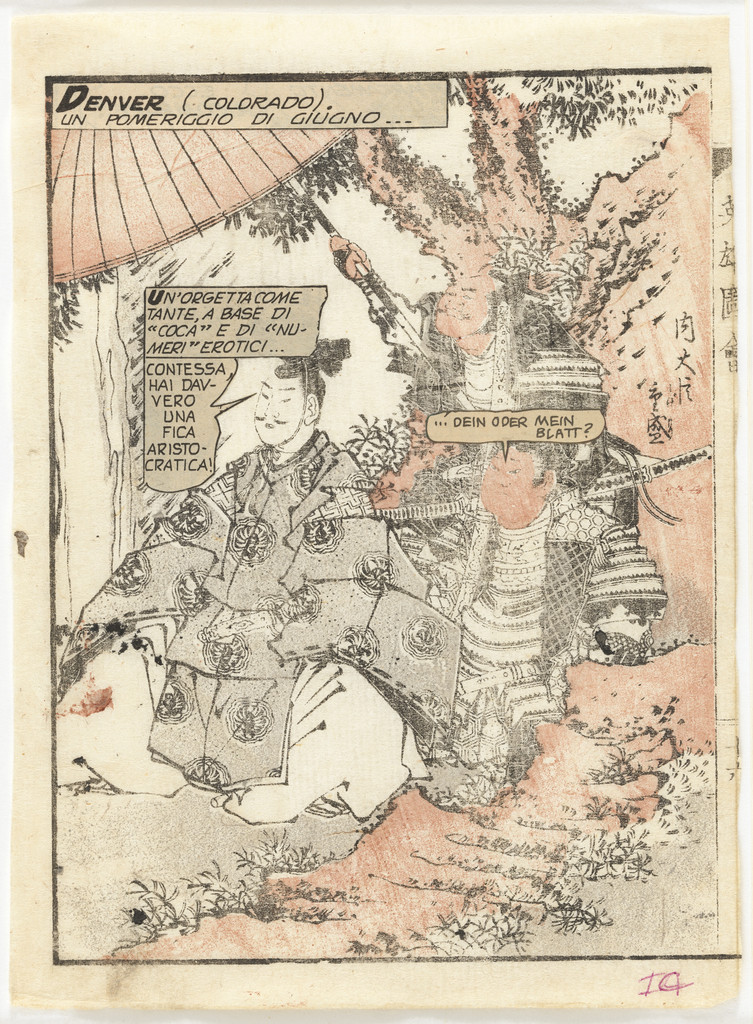 DENVER (COLORADO).
UN POMERIGGIO DI GIUGNO...
UN'ORGETTA COME
TANTE, A BASE DI
“COCA” E DI “NU-
MERI” EROTICI...
CONTESSA,
HAI DAV-
VERO
UNA
FICA
ARISTO-
CRATICA!
... DEIN ODER MEIN
BLATT?
内大臣
重盛
英雄圖會